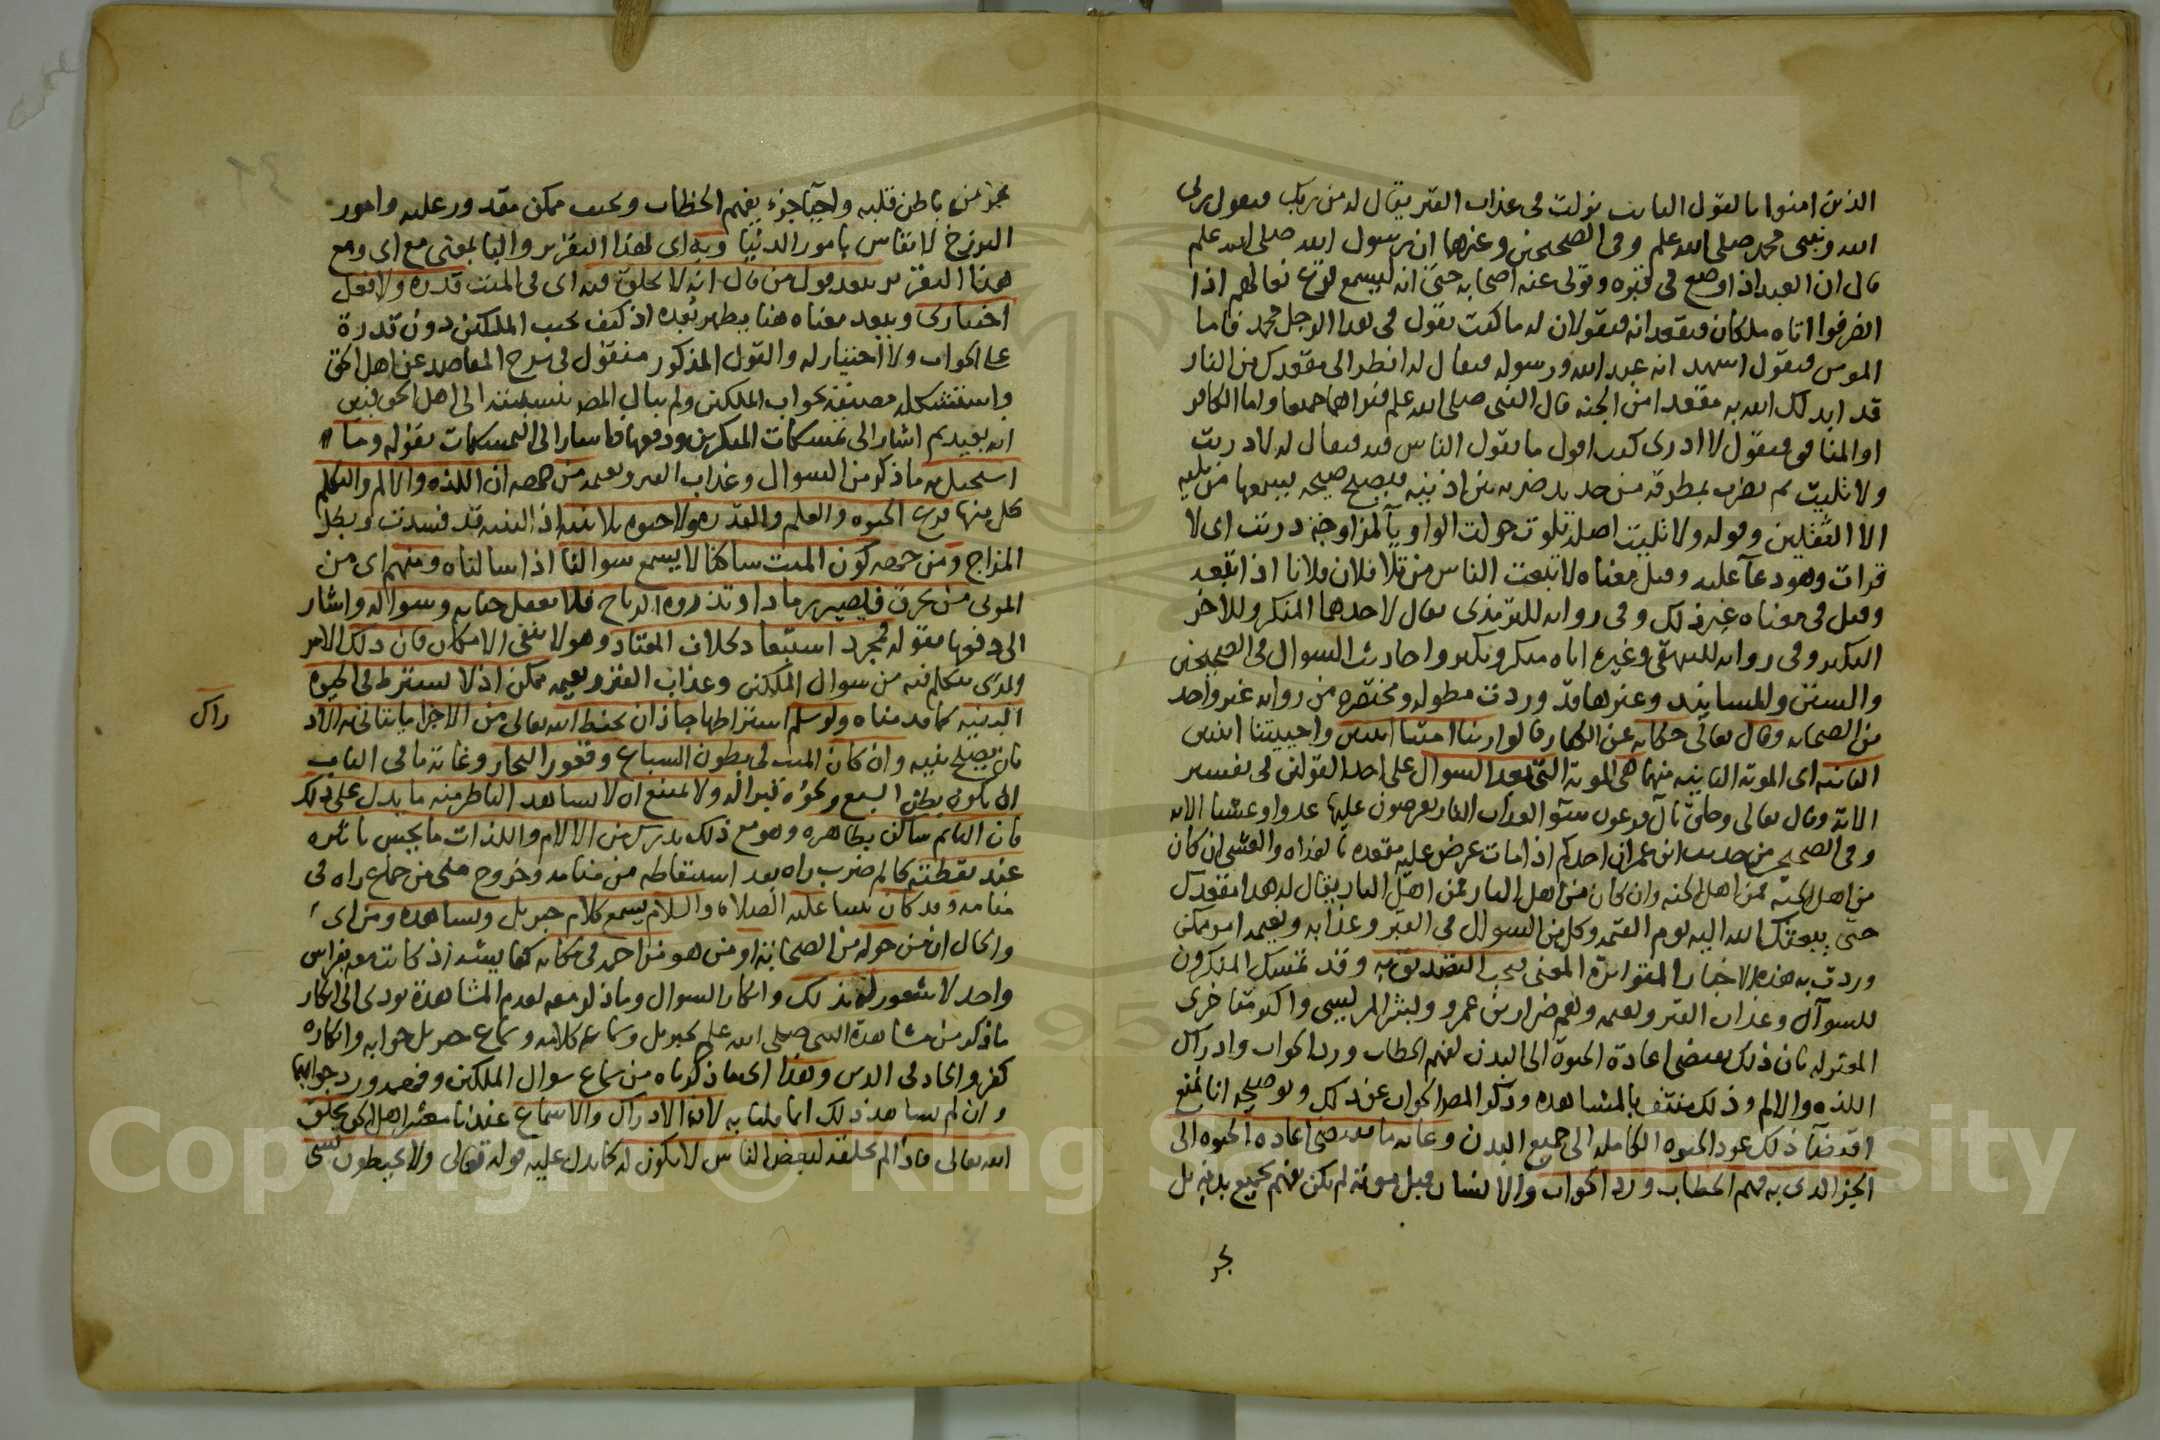 الذين امنوا بالقول الثابت نزلت فى عذاب القبر يقال له من ربك فيقول ربى
الله ونبيى محمد صلى الله علم وفى الصحيحين وغيرها ان رسول الله صلى الله علم
قال ان العبد اذا وضع فى قبره وتولى عنه اصحابه حتى انه ليسمع قرع نعالهم اذا
انصرفوا اتاه ملكان فيقعدانه فيقولان له ما كنت تقول فى هذا الرجل محمد فاما
المومن فيقول اشهد انه عبد الله ورسوله فيقال له انظر الى مقعدك من النار
قد ابدلك الله به مقعدا من الجنه قال النبى صلى الله علم فيراهما جميعا واما الكافر
او المنافق فيقول لا ادرى كنت اقول ما يقول الناس فيه فيقال له لا دريت
ولا تليت ثم يضرب بمطرقه من حديد ضربه بين اذنيه فيصيح صيحه يسمعها من يليه
الا الثقلين وقوله ولا تليت اصله تلوت حولت الواو يآ لمزاوجة دريت اى لا
قرات وهو دعآ عليه وقيل معناه لا تبعت الناس من تلا فلان فلانا اذا تبعه
وقيل فى معناه غير ذلك وفى روايه للترمذى يقال لاحدهما المنكر وللاخر
النكير وفى روايه للبيهقى وغيره اتاه منكر ونكير واحاديث السوال فى الصحيحين
والسنن والمسانيد وغيرها قد وردت مطوله ومختصره من روايه غير واحد
من الصحابه وقال تعالى حكايه عن الكفار قالوا ربنا امتنا اثنتين واحييتنا اثنتين
الثانيه اى الموته الثانيه منهما هى الموته التى بعد السوال على احد القولين فى تفسير
الايه وقال تعالى وحاق بآل فرعون سوٓ العذاب النار يعرضون عليها غدوا وعشيا الايه
وفى الصحيح من حديث ابن عمر ان احدكم اذا مات عرض عليه مقعده بالغداه والعشى ان كان
من اهل الجنه فمن اهل الجنه وان كان من اهل النار فمن اهل النار يقال له هذا مقعدك
حتى يبعثك الله اليه يوم القيمه وكل من السوال فى القبر وعذابه ونعيمه امر ممكن
وردت به هذه الاخبار المتواترة المعنى يجب التصديق به وقد تمسك المنكرون
للسوآل وعذاب القبر ونعيمه ونعيم ضرار بن عمرو وبشر المريسى واكثر متاخرى
المعتزله بان ذلك يقتضى اعادة الحيوة الى البدن لفهم الخطاب ورد الجواب وادراك
اللذه والالم وذلك منتف بالمشاهده وذكر المص الجواب عن ذلك وتوضيحه انا نمنع
اقتضآ ذلك عود الحيوه الكامله الى جميع البدن وغايه ما يقتضى اعاده الحيوه الى
الجز الذى به فهم الخطاب ورد الجواب والانسان قبل موته لم يكن يفهم بجميع بدنه بل
بجز
بجز من باطن قلبه واحيآ جزء يفهم الخطاب ويجيب ممكن مقدور عليه وامور
البرزخ لا تقاس بامور الدنيا وبه اى بهذا التقرير والبا بمعنى مع اى ومع
هذا التقرير يبعد قول من قال انه لا يخلق فيه اى فى الميت قدره ولا فعل
اختيارى ويبعد معناه هنا يظهر بُعده اذ كيف يجيب الملكين دون قدرة
على الجواب ولا اختيار له والقول المذكور منقول فى شرح المقاصد عن اهل الحق
واستشكله مصنفه بجواب الملكين ولم يبال المص بنسبته الى اهل الحق فبين
انه بعيد ثم اشار الى تمسكات المنكرين ودفعها فاشار الى التمسكات بقوله وما
استحيل به ما ذكر من السوال وعذاب القبر ونعيمه من جهه ان اللذه والالم والتكلم
كل منها فرع الحيوه والعلم والقدره ولا حيوه بلا بنيه اذ البنيه قد فسدت وبطل
المزاج ومن جهه كون الميت ساكنا لا يسمع سوالنا اذا سالناه ومنهم اى من
الموتى من يحرق فيصير رمادا وتذروه الرياح فلا يعقل حياته وسواله واشار
الى دفعها بقوله فمجرد استبعاد لخلاف المعتاد وهو لا ينفى الامكان فان ذلك الامر
والذى نتكلم فيه من سوال الملكين وعذاب القبر ونعيمه ممكن اذ لا يشترط فى الحيوه
البنيه كما قدمناه ولو سلم اشتراطها جاز ان يحفظ الله تعالى من الاجزا ما يتاتى به الاد
راك
فان يصلح بنيه وان كان الميت فى بطون السباع وقعور البحار وغايه ما فى الباب
ان يكون بطن السبع ونحوه قبرا له ولا يمتنع ان لا يشاهد الناظر منه ما يدل على ذلك
فان النايم ساكن بظاهره وهو مع ذلك يدرك من الالام واللذات ما يحس تاثيره
عند يقظته كالم ضرب راه بعد استيقاظه من منامه وخروج منى من جماع راه فى
منامه وقد كان نبينا عليه الصلاه والسلام يسمع كلام جبريل ويشاهده ومن اى
والحال ان من حوله من الصحابة او من هو مزاحمه فى مكانه كعايشه اذ كانت معه بفراش
واحد لا شعور له بذلك وانكار السوال وما ذكر معه لعدم المشاهدة يودى الى انكار
ما ذكر من مشاهدة النبى صلى الله علم لجبريل وسماعه كلامه وسماع جبريل جوابه وانكاره
كفر والحاد فى الدين وهذا اى ما ذكرناه من سماع سوال الملكين وفهمه ورد جوابهما
وان لم يشاهد ذلك انما قلنا به لان الادراك والاسماع عندنا معشر اهل الحق بخلق
الله تعالى فاذا لم يخلقه لبعض الناس لا يكون له كما يدل عليه قوله تعالى ولا يحيطون بشى